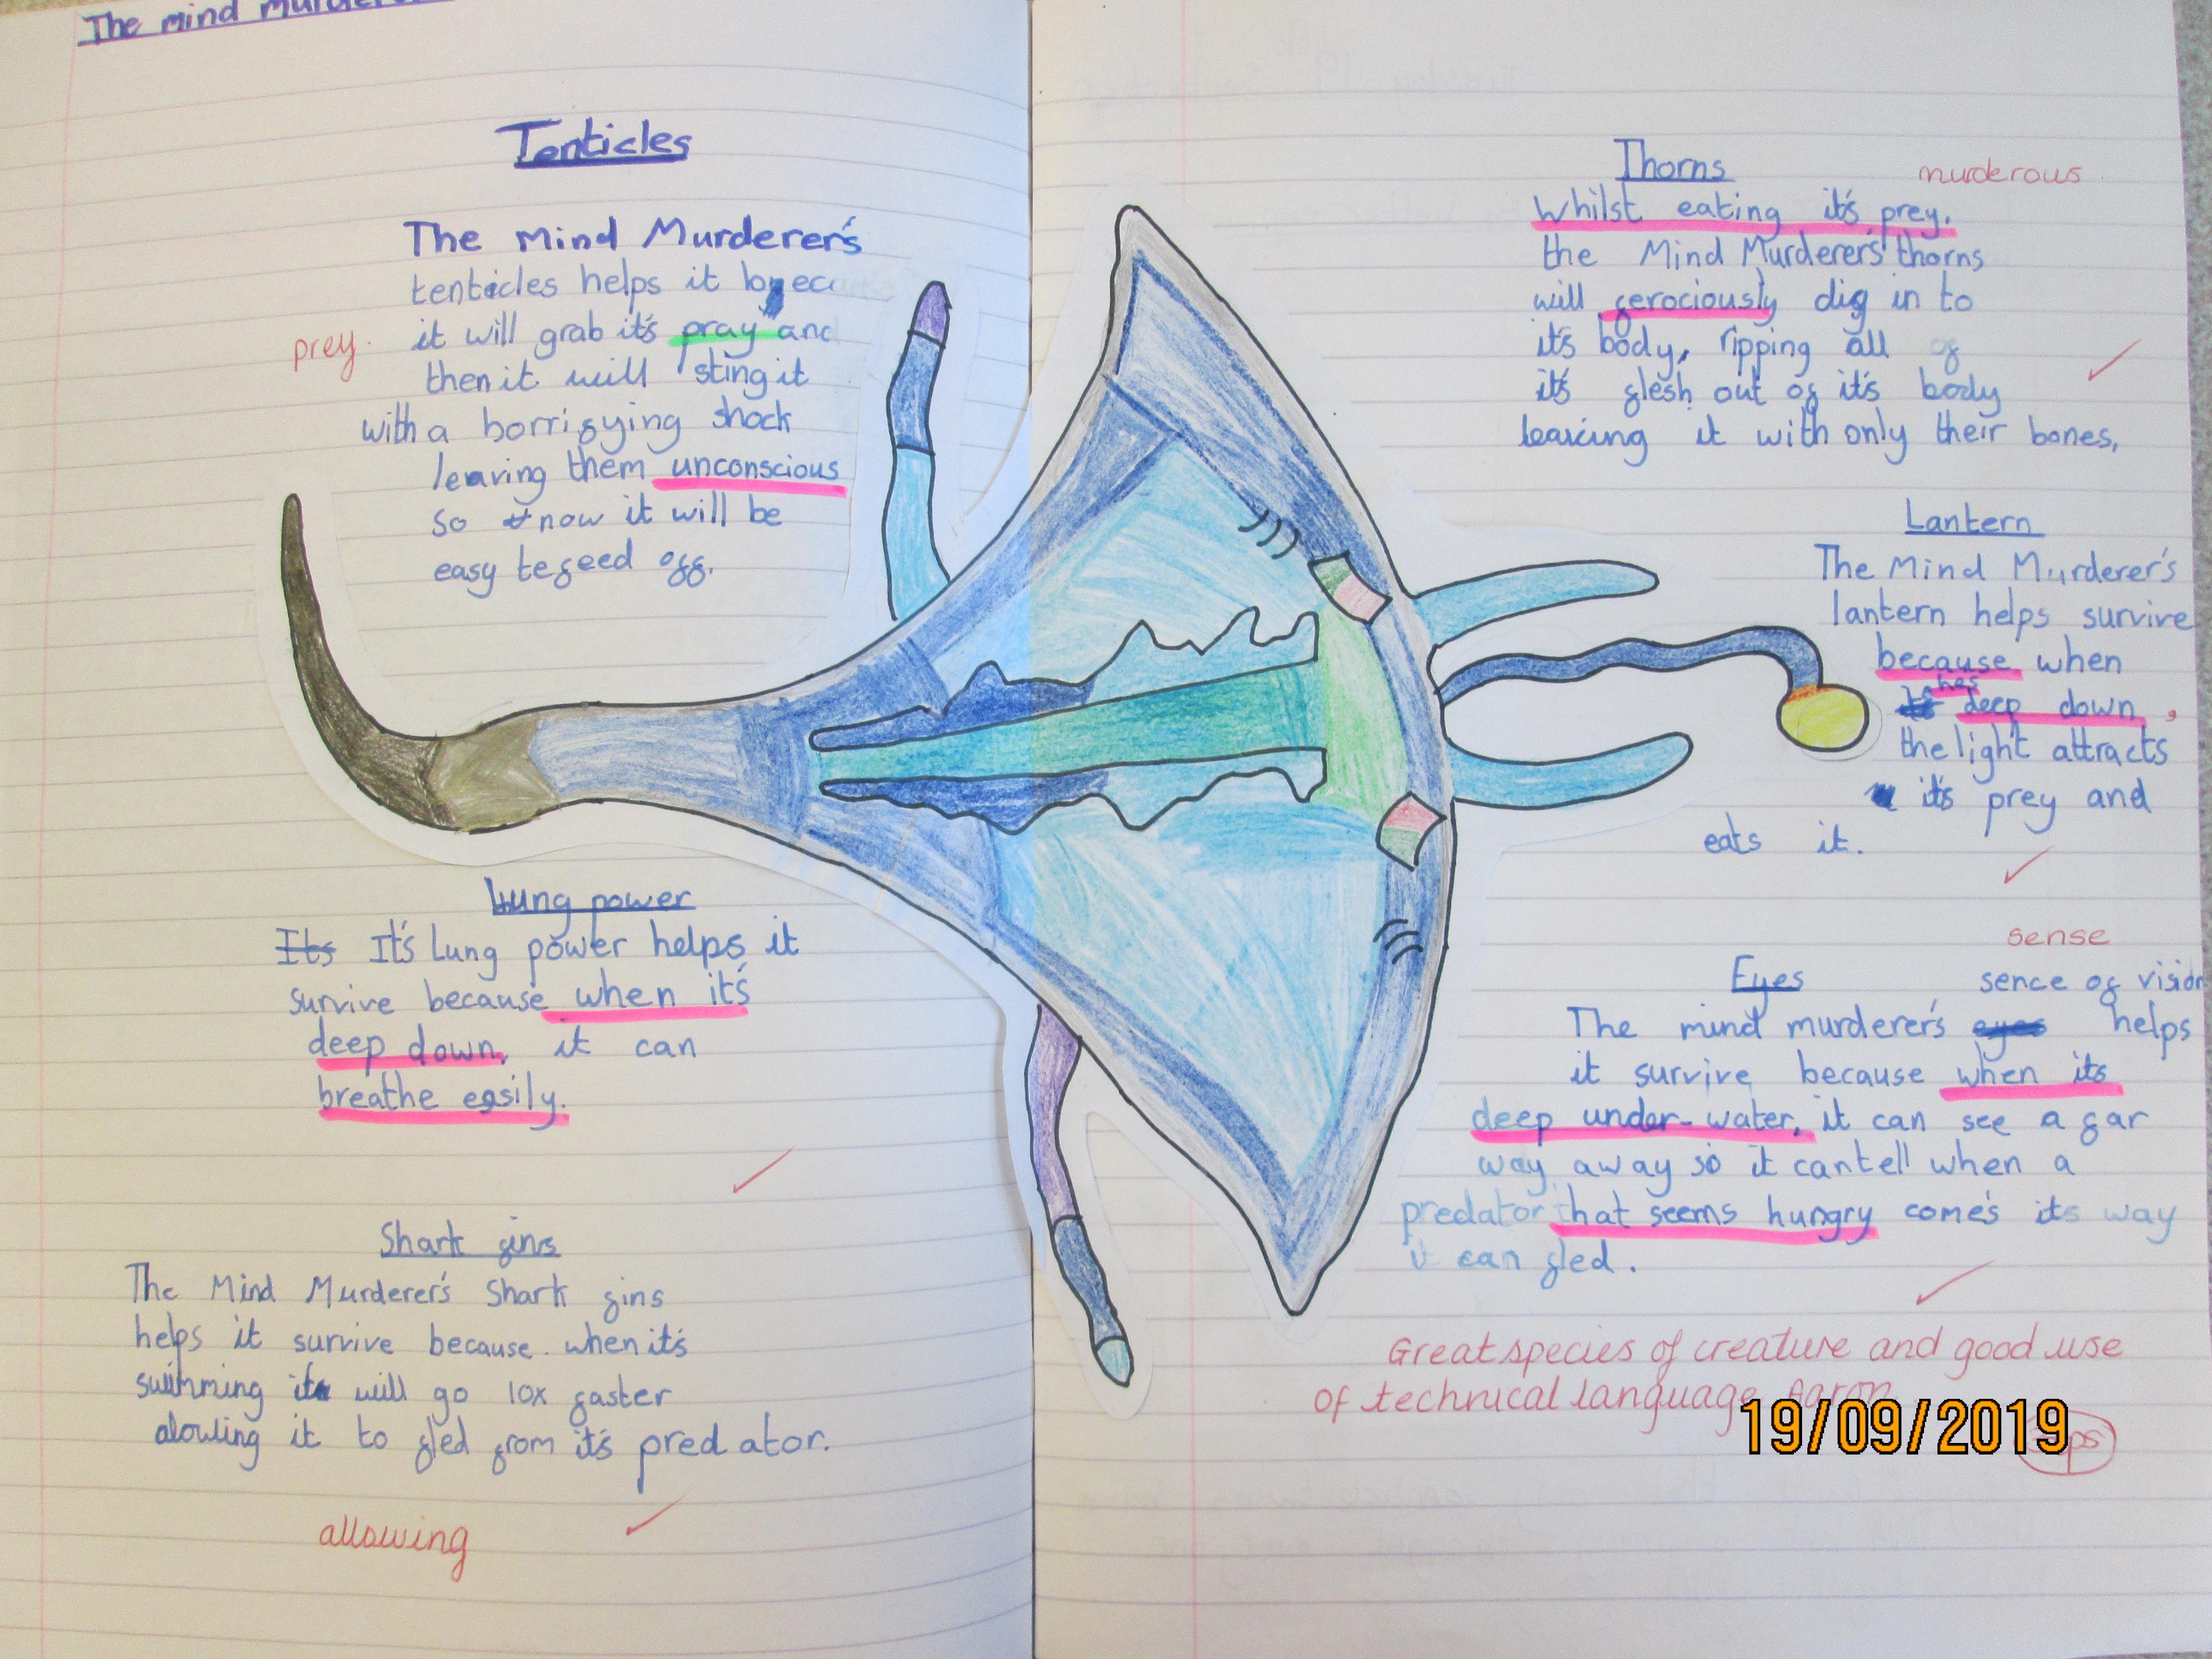 The mind
Tenticles
The Mind Murderer's
tentacles helps it by
prey.
it will grab it's pray and
then it will sting it
with a horrifying shock
leaving them unconscious
so now it will be
easy to feed off.
Lung power
Its It's Lung power helps it
survive because when it's
deep down, it can
breathe easily.
Shark fins
The Mind Murderer's Shark fins
helps it survive because when it's
swimming it will go 10x faster
alowling it to fled from it's predator.
allowing
Thorns
murderous
Whilst eating it's prey,
the Mind Murderer's thorns
will ferociously dig in to
it's body, ripping all of
it's flesh out of it's body
leaving it with only their bones,
Lantern
The Mind Murderer's
lantern helps survive
because when
hes
deep down,
the light attracts
it's prey and
eats it.
sense
Eyes
sence of vision
The mind murderer's eyes helps
it survive because when its
deep under-water, it can see a far
way away so it can tell when a
predator that seems hungry come's its way
it can fled.
Great species of creature and good use
of technical language Aaron
19/09/2019